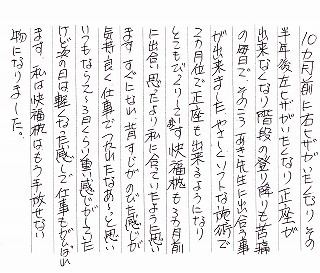 10ヵ月前に右ヒザがいたくなり その
半年後左ヒザがいたくなり正座が
出来なくなり階段の登り降りも苦痛
の毎日で、そのころあ先生に出会う事
が出来ました やさしくソフトな施術で
2ヵ月位で正座も出来るようになり
とてもびっくりしてます 快福枕も3ヵ月前
に出会い思たより私に合ていたように思い
ます すぐになれ 背すじがのびた感じが
気持ち良く 仕事でつかれたなあ〜と思い
いつもなら2〜3日くらい重い感じがしていた
けど次の日は軽くなった感じで仕事もがんばれ
ます。私は快福枕はもう手放せない
物になりました。